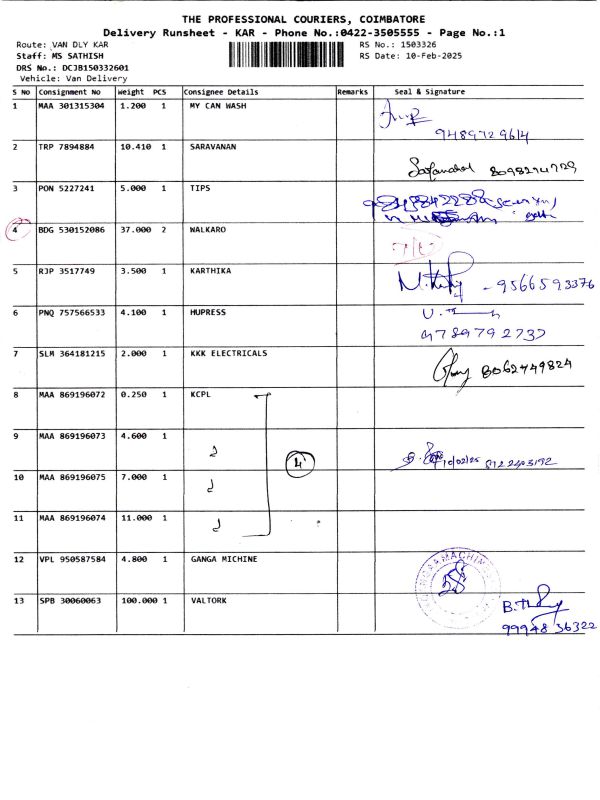 THE PROFESSIONAL COURIERS, COIMBATORE
Delivery Runsheet - KAR - Phone No.:0422-3505555 - Page No.:1
Route: VAN DLY KAR RS No.: 1503326
Staff: MS SATHISH RS Date: 10-Feb-2025
DRS No.: DCJB150332601
Vehicle: Van Delivery
S No Consignment No Weight PCS Consignee Details Remarks Seal & Signature
1 MAA 301315304 1.200 1 MY CAN WASH
9489729614
2 TRP 7894884 10.410 1 SARAVANAN
8098274729
3 PON 5227241 5.000 1 TIPS
4 BDG 530152086 37.000 2 WALKARO
5 RJP 3517749 3.500 1 KARTHIKA
9566593376
6 PNQ 757566533 4.100 1 HUPRESS
9789792737
7 SLM 364181215 2.000 1 KKK ELECTRICALS
8062749824
8 MAA 869196072 0.250 1 KCPL
9 MAA 869196073 4.600 1
4 10/02/25 8122403192
10 MAA 869196075 7.000 1
11 MAA 869196074 11.000 1
12 VPL 950587584 4.800 1 GANGA MICHINE
13 SPB 30060063 100.000 1 VALTORK
99948 36322